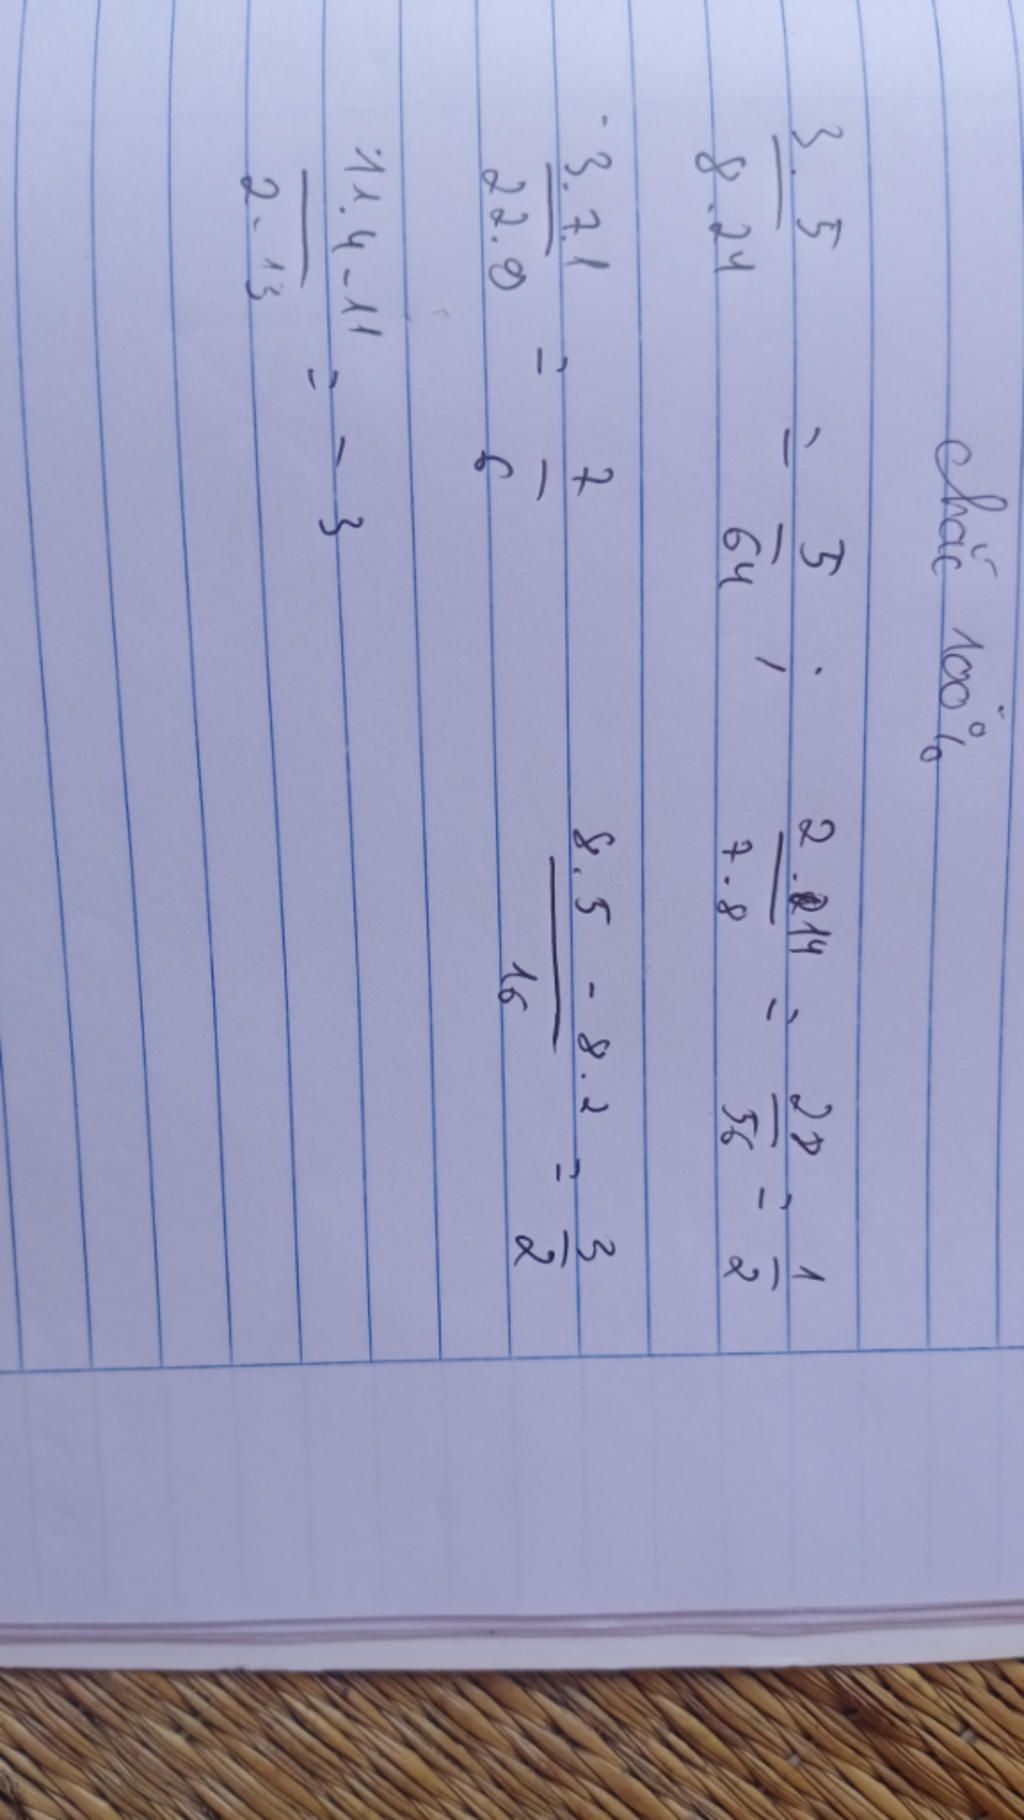 chắc 100%
3.5/8.24 = 5/64 ; 2.14/7.8 = 28/56 = 1/2
3.7.1/22.9 = 7/6 8.5 - 8.2/16 = 3/2
11.4-11/2-13 = -3